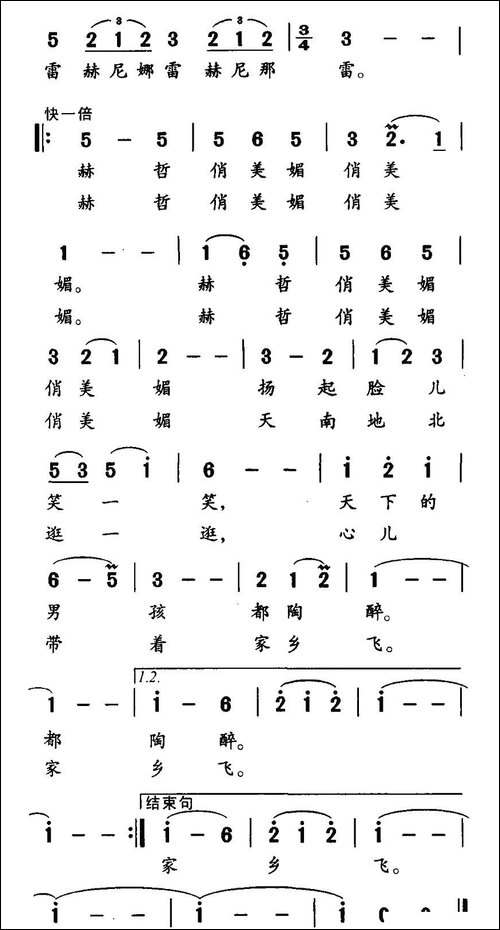 5 2 1 2 3 2 1 2 | 3/4 3 - - |
雷 赫 尼 娜 雷 赫 尼 那 雷。
快一倍
5 - 5 | 5 6 5 | 3 2. 1 |
赫 哲 俏 美 媚 俏 美
赫 哲 俏 美 媚 俏 美
1 - - | 1 6 5 | 5 6 5 |
媚。 赫 哲 俏 美 媚
媚。 赫 哲 俏 美 媚
3 2 1 | 2 - - | 3 - 2 | 1 2 3 |
俏 美 媚 扬 起 脸 儿
俏 美 媚 天 南 地 北
5 3 5 i | 6 - - | i 2 i |
笑 一 笑, 天 下 的
逛 一 逛, 心 儿
6 - 5 | 3 - - | 2 1 2 | 1 - - |
男 孩 都 陶 醉。
带 着 家 乡 飞。
1.2.
1 - - | i - 6 | 2 i 2 | i - - |
都 陶 醉。
家 乡 飞。
结束句
i - - :| i - 6 | 2 i 2 | i - - |
家 乡 飞。
i - - | i - - | i - - | i